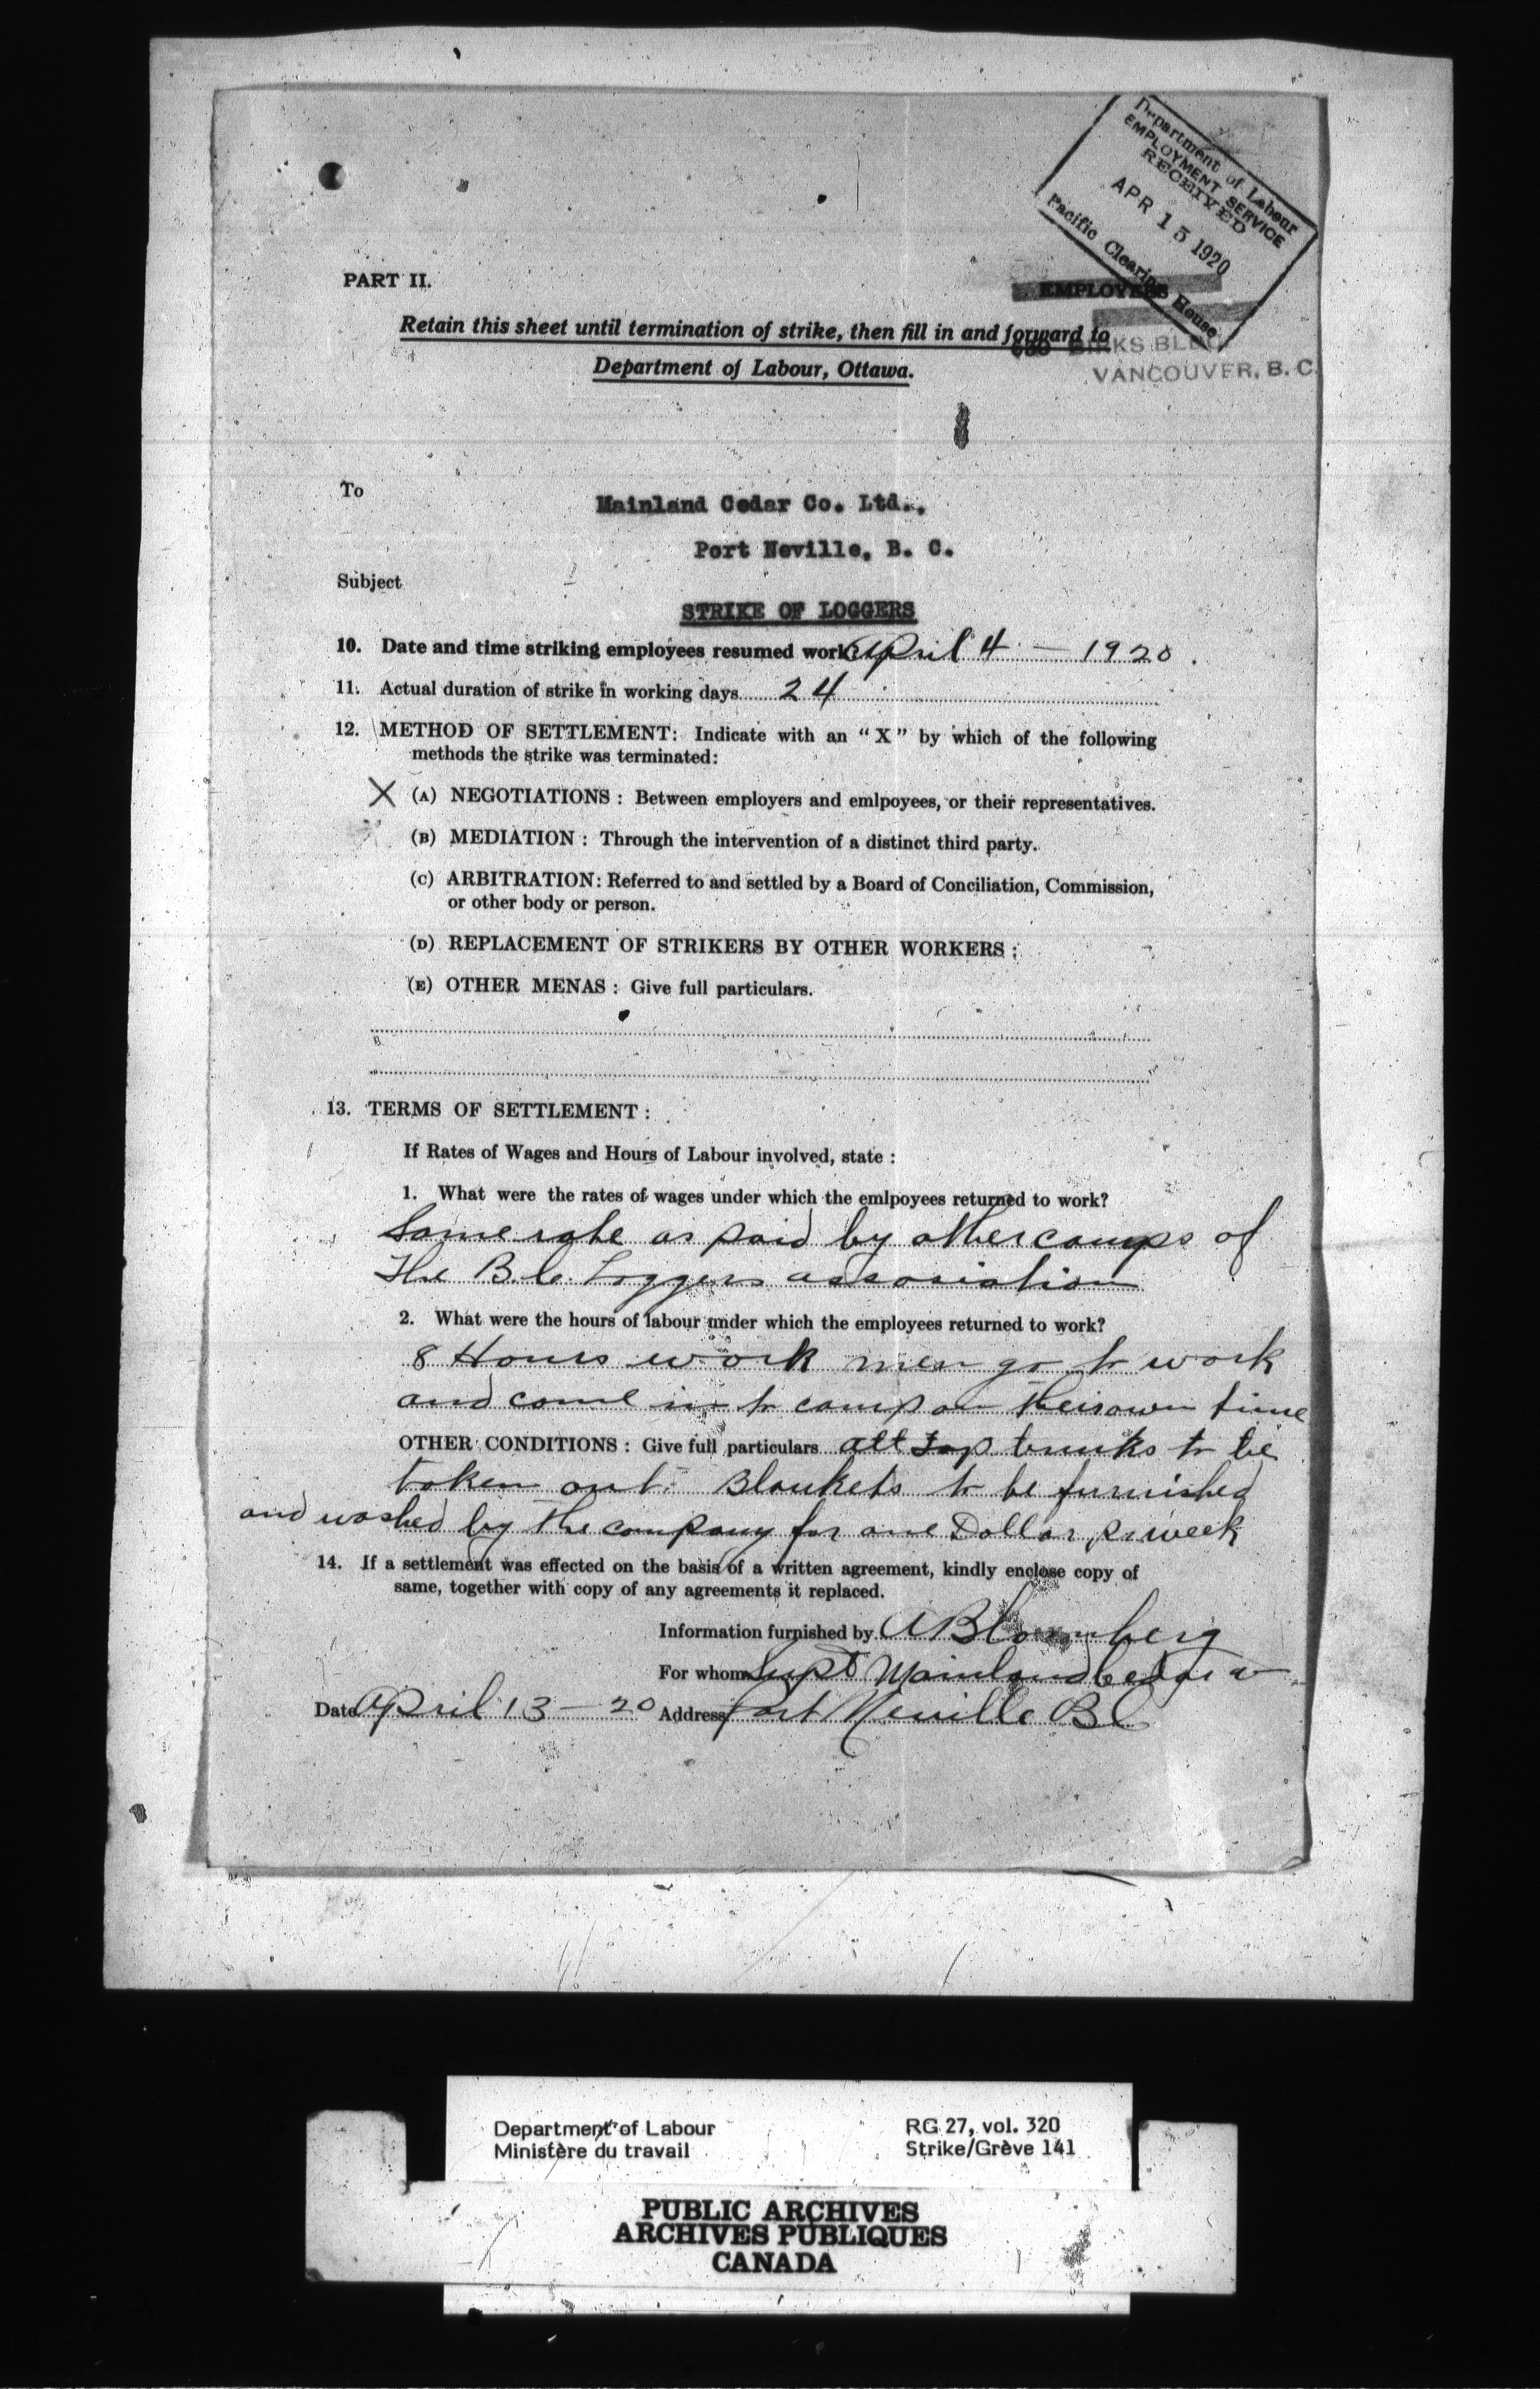 Department of Labour
EMPLOYMENT SERVICE
RECEIVED
APR 15 1920
Pacific Clearing House
PART II.
EMPLOYERS
Retain this sheet until termination of strike, then fill in and forward to
BIRKS BLDG
Department of Labour, Ottawa.
VANCOUVER, B. C.
To
Mainland Cedar Co. Ltd.,
Port Neville, B. C.
Subject
STRIKE OF LOGGERS
10. Date and time striking employees resumed work April 4 — 1920.
11. Actual duration of strike in working days 24
12. METHOD OF SETTLEMENT: Indicate with an "X" by which of the following
methods the strike was terminated:
X (A) NEGOTIATIONS : Between employers and emlpoyees, or their representatives.
(B) MEDIATION : Through the intervention of a distinct third party.
(C) ARBITRATION: Referred to and settled by a Board of Conciliation, Commission,
or other body or person.
(D) REPLACEMENT OF STRIKERS BY OTHER WORKERS :
(E) OTHER MENAS : Give full particulars.
13. TERMS OF SETTLEMENT :
If Rates of Wages and Hours of Labour involved, state :
1. What were the rates of wages under which the emlpoyees returned to work?
Same rate as paid by other camps of
The B.C. Loggers association
2. What were the hours of labour under which the employees returned to work?
8 Hours work men go to work
and come in to camp on their own time
OTHER CONDITIONS : Give full particulars all top bunks to be
taken out. Blankets to be furnished
and washed by the company for one Dollar pr week
14. If a settlement was effected on the basis of a written agreement, kindly enclose copy of
same, together with copy of any agreements it replaced.
Information furnished by A Bloomberg
For whom Supt Mainland Cedar Co
Date April 13 — 20 Address Port Neville BC
Department of Labour
Ministère du travail
RG 27, vol. 320
Strike/Grève 141
PUBLIC ARCHIVES
ARCHIVES PUBLIQUES
CANADA